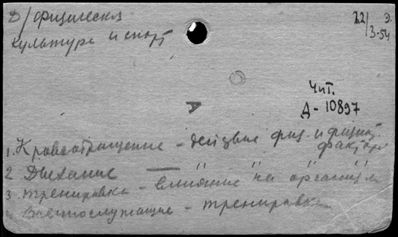 Д/физическая
культура и спорт
22/3-54
Э
Чит.
Д-10897
А
1. Кровообращение - действие физ. и физич.
факторов
2 Дыхание — " "
3. тренировка - влияние на организм
4 Военнослужащие - тренировка